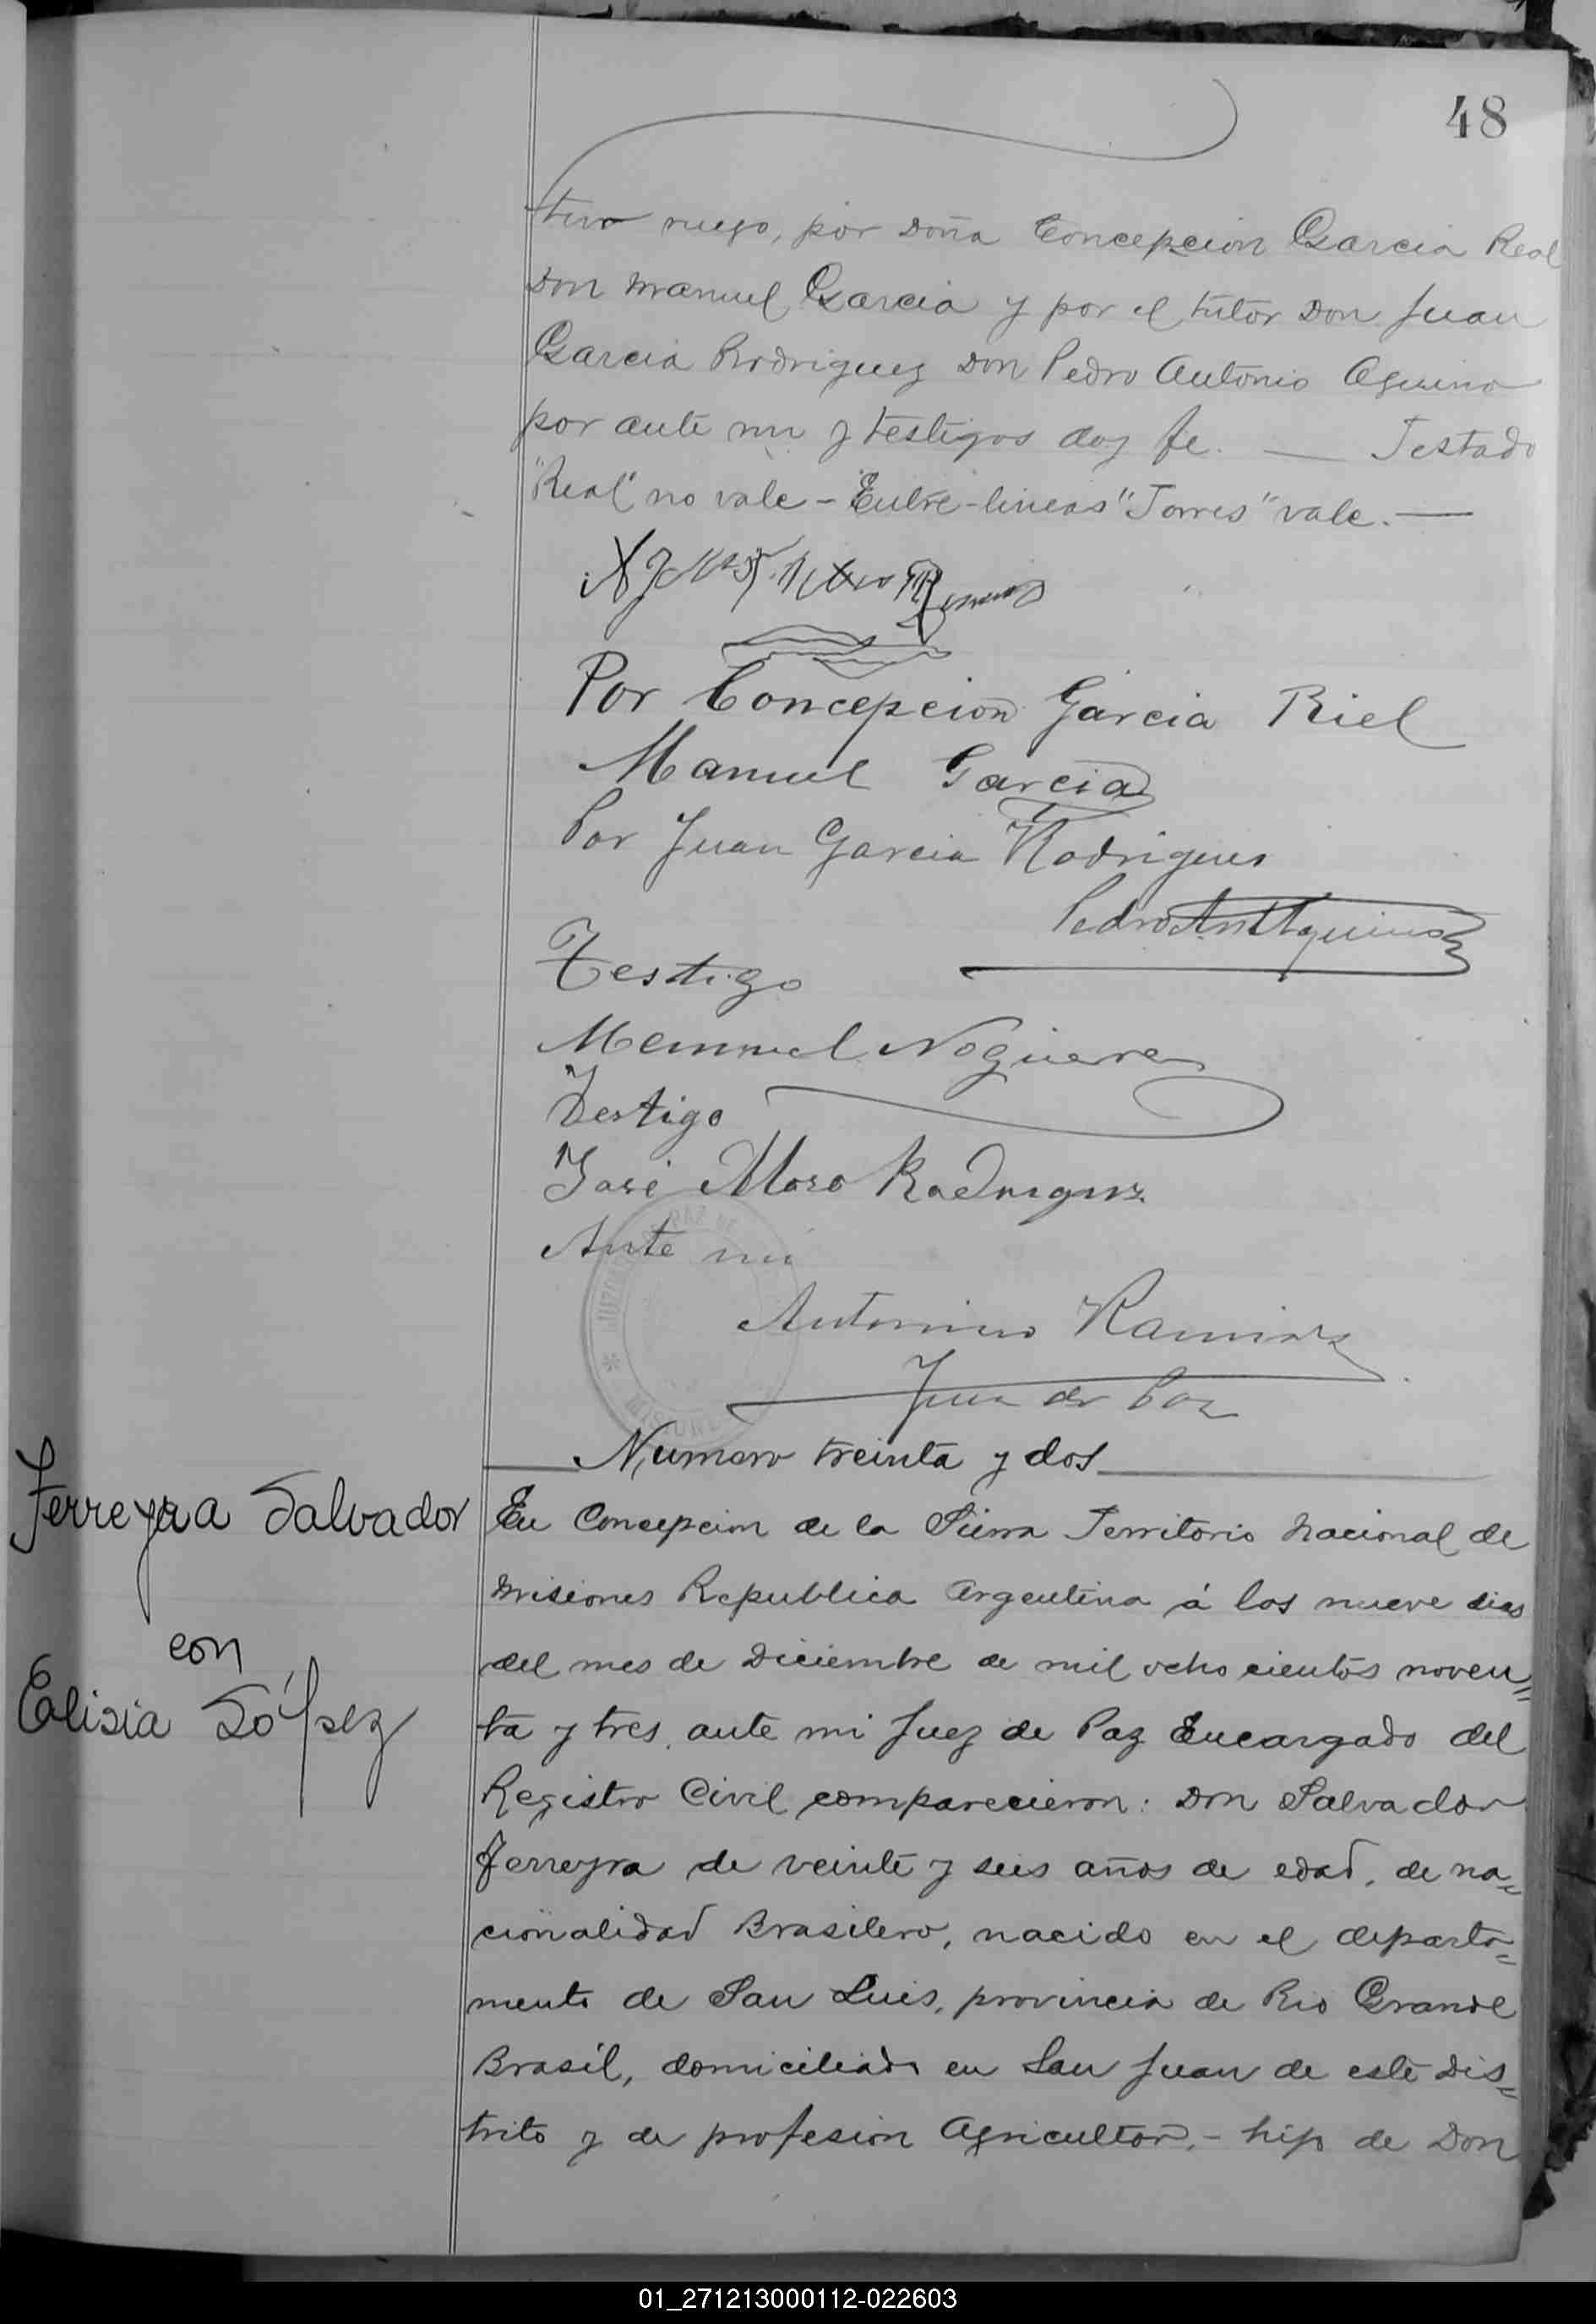 48
tivo ruego, por Doña Concepcion Garcia Real
Don Manuel Garcia y por el tutor Don Juan
Garcia Rodriguez Don Pedro Antonio Aguino
por ante mi y testigos doy fe. — Testado
"Real" no vale - Entre-lineas "Torres" vale. —
Por Concepcion Garcia Riel
Manuel Garcia
Por Juan Garcia Rodrigues
Pedro Ant Aquino
Testigo
Manuel Noguera
Testigo
José Moro Rodriguez
Ante mi
Antonino Ramirez
Juez de Paz
JUZ PAZ DE
MISIONES
Numero treinta y dos
Ferreyra Salvador
con
Elisia López
En Concepcion de la Sierra Territorio Nacional de
Misiones Republica Argentina á los nueve dias
del mes de Diciembre de mil ocho cientos noven=
ta y tres, ante mi Juez de Paz Encargado del
Registro Civil comparecieron: Don Salvador
Ferreyra de veinte y seis años de edad, de na=
cionalidad Brasilero, nacido en el departa=
mento de San Luis, provincia de Rio Grande
Brasil, domiciliado en San Juan de este Dis=
trito y de profesion Agricultor, - hijo de Don
01_271213000112-022603